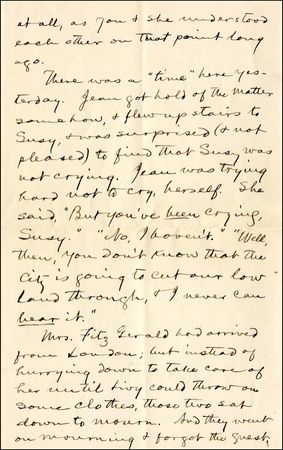 at all, as you & she understood
each other on that point long
ago.
There was a "time" here yes-
terday. Jean got hold of the matter
somehow, & flew up stairs to
Susy, & was surprised (& not
pleased) to find that Susy was
not crying. Jean was trying
hard not to cry, herself. She
said, "But you've been crying,
Susy." "No, I haven't." "Well,
then, you don't know that the
city is going to cut our low
land through, & I never can
bear it."
Mrs. Fitz Gerald had arrived
from London; but instead of
hurrying down to take care of
her until Livy could throw on
some clothes, those two sat
down to mourn. And they went
on mourning & forgot the guest,